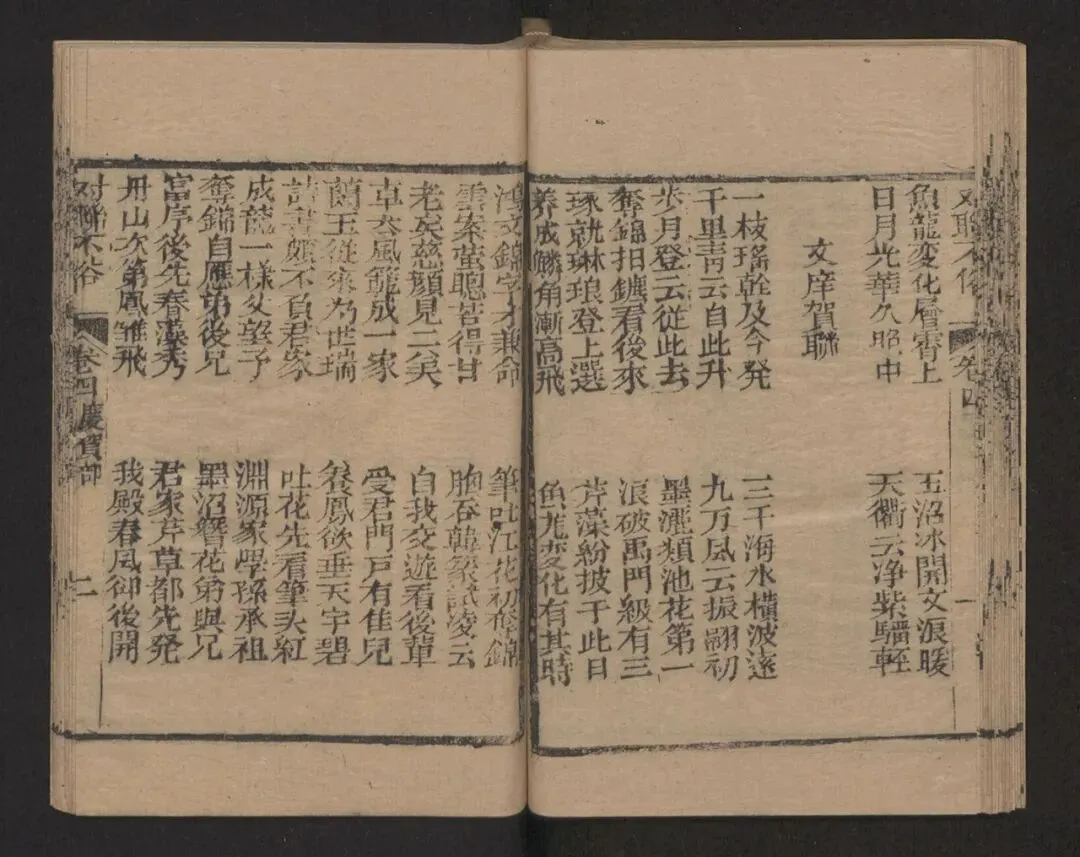 对聯不俗 卷四 一
魚龍变化層霄上 玉沼冰開文浪暖
日月光華久照中 天衢云净紫騮輕
文庠賀聯
一枝瑤幹及今発 三千海水橫波遠
千里青云自此升 九万风云振翮初
步月登云從此去 墨灑類池花第一
奪錦扣鑣看後來 浪破禹門級有三
琢就琳琅登上選 芹藻紛披于此日
养成麟角漸高飛 魚龙变化有其時
鴻文錦字才兼命 筆吐江花初奪錦
雪案萤聰苦得甘 胸吞韓篆試凌云
老矣慈顔見二矣 自我交遊看後輩
卓犬風範成一家 受君門戸有佳兒
蘭玉從來為世瑞 養鳳欲垂天宇碧
詩書頗不負君家 吐花先看筆头紅
成龍一樣父望子 淵源家學孫承祖
奪錦自應弟後兄 墨沼簪花弟與兄
富序後先春藻秀 君家芹草都先発
丹山次第鳳雛飛 我殿春風御後開
对聯不俗 卷四慶賀部 二